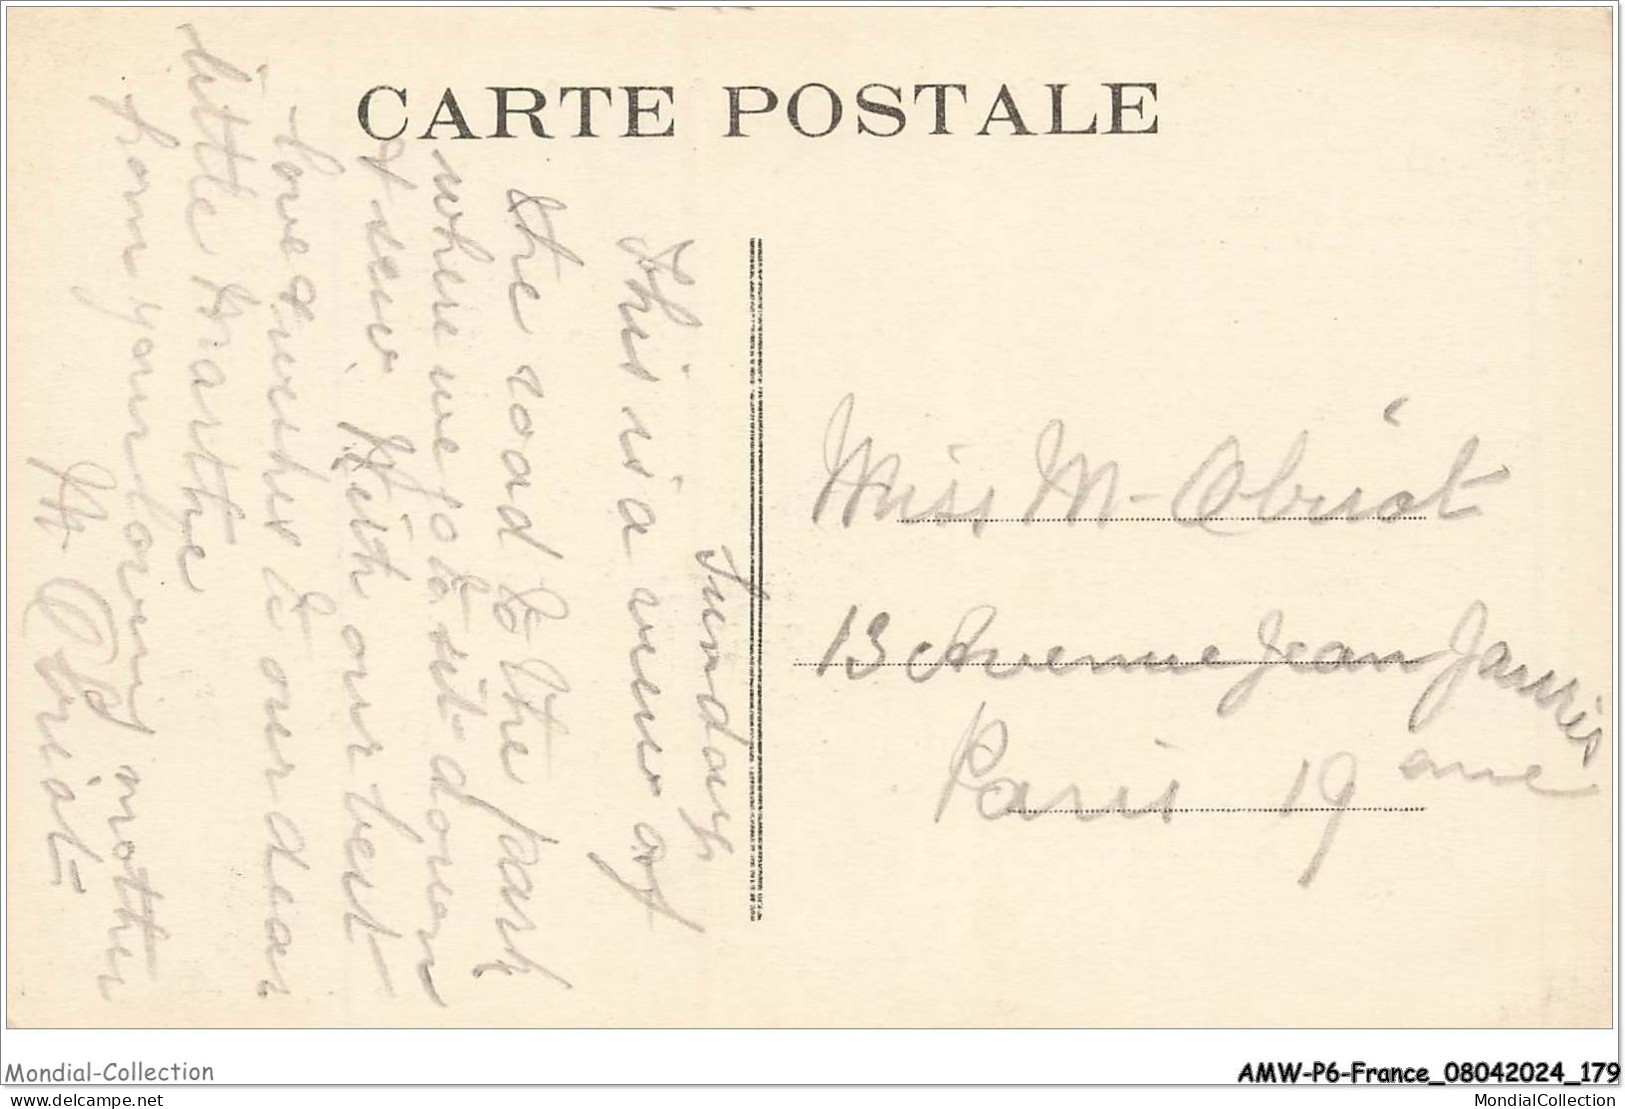 CARTE POSTALE
Sunday
This is a view of
the road to the park
where we go to sit down
& sew. With our best
love & wishes to our dear
little Marthe
from your loving mother
M Obriot
Miss M - Obriot
13 Avenue Jean Jaurès
Paris 19 eme
Mondial-Collection
AMW-P6-France_08042024_179
delcampe.net
MondialCollection